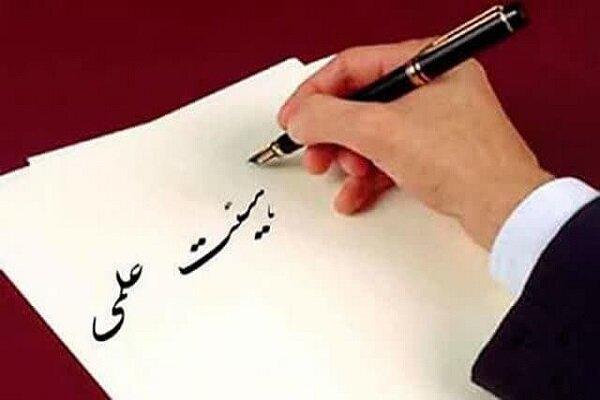 هیئت علمی